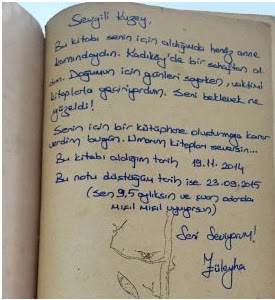 Sevgili Kuzey,
Bu kitabı senin için aldığımda henüz anne
karnındaydın. Kadıköy'de bir sahaftan al-
dım. Doğumun için günleri sayarken, vaktimi
kitaplarla geçiriyordum. Seni beklemek ne
güzeldi!
Senin için bir kütüphane oluşturmaya karar
verdim bugün. Umarım kitapları seversin...
Bu kitabı aldığım tarih 19.11.2014
Bu notu düştüğüm tarih ise 23.09.2015
(sen 9,5 aylıksın ve şuan odanda
mışıl mışıl uyuyorsun)
Seni Seviyorum!
Züleyha